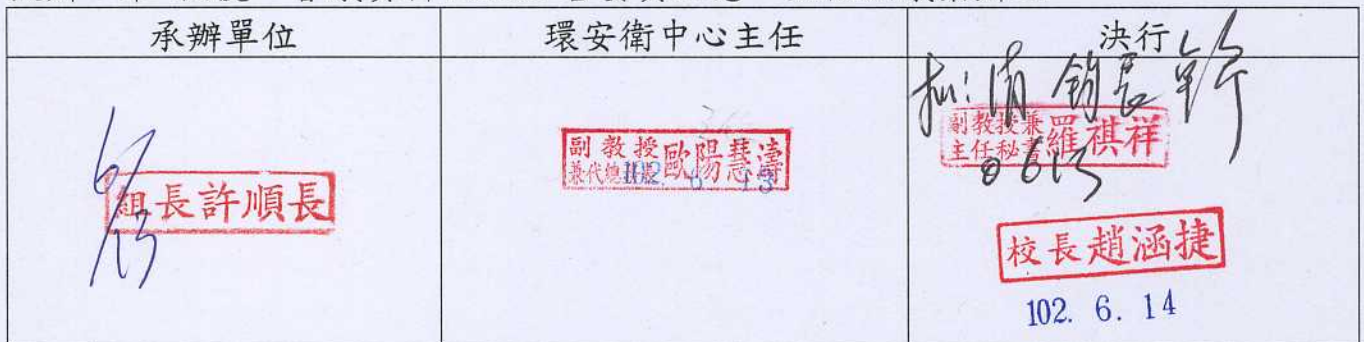 承辦單位
環安衛中心主任
決行
擬:請 鈞長
6/13
組長許順長
副教授兼代總務長歐陽慧濤
102. 6. 13
副教授兼主任秘書羅祺祥
0613
校長趙涵捷
102. 6. 14